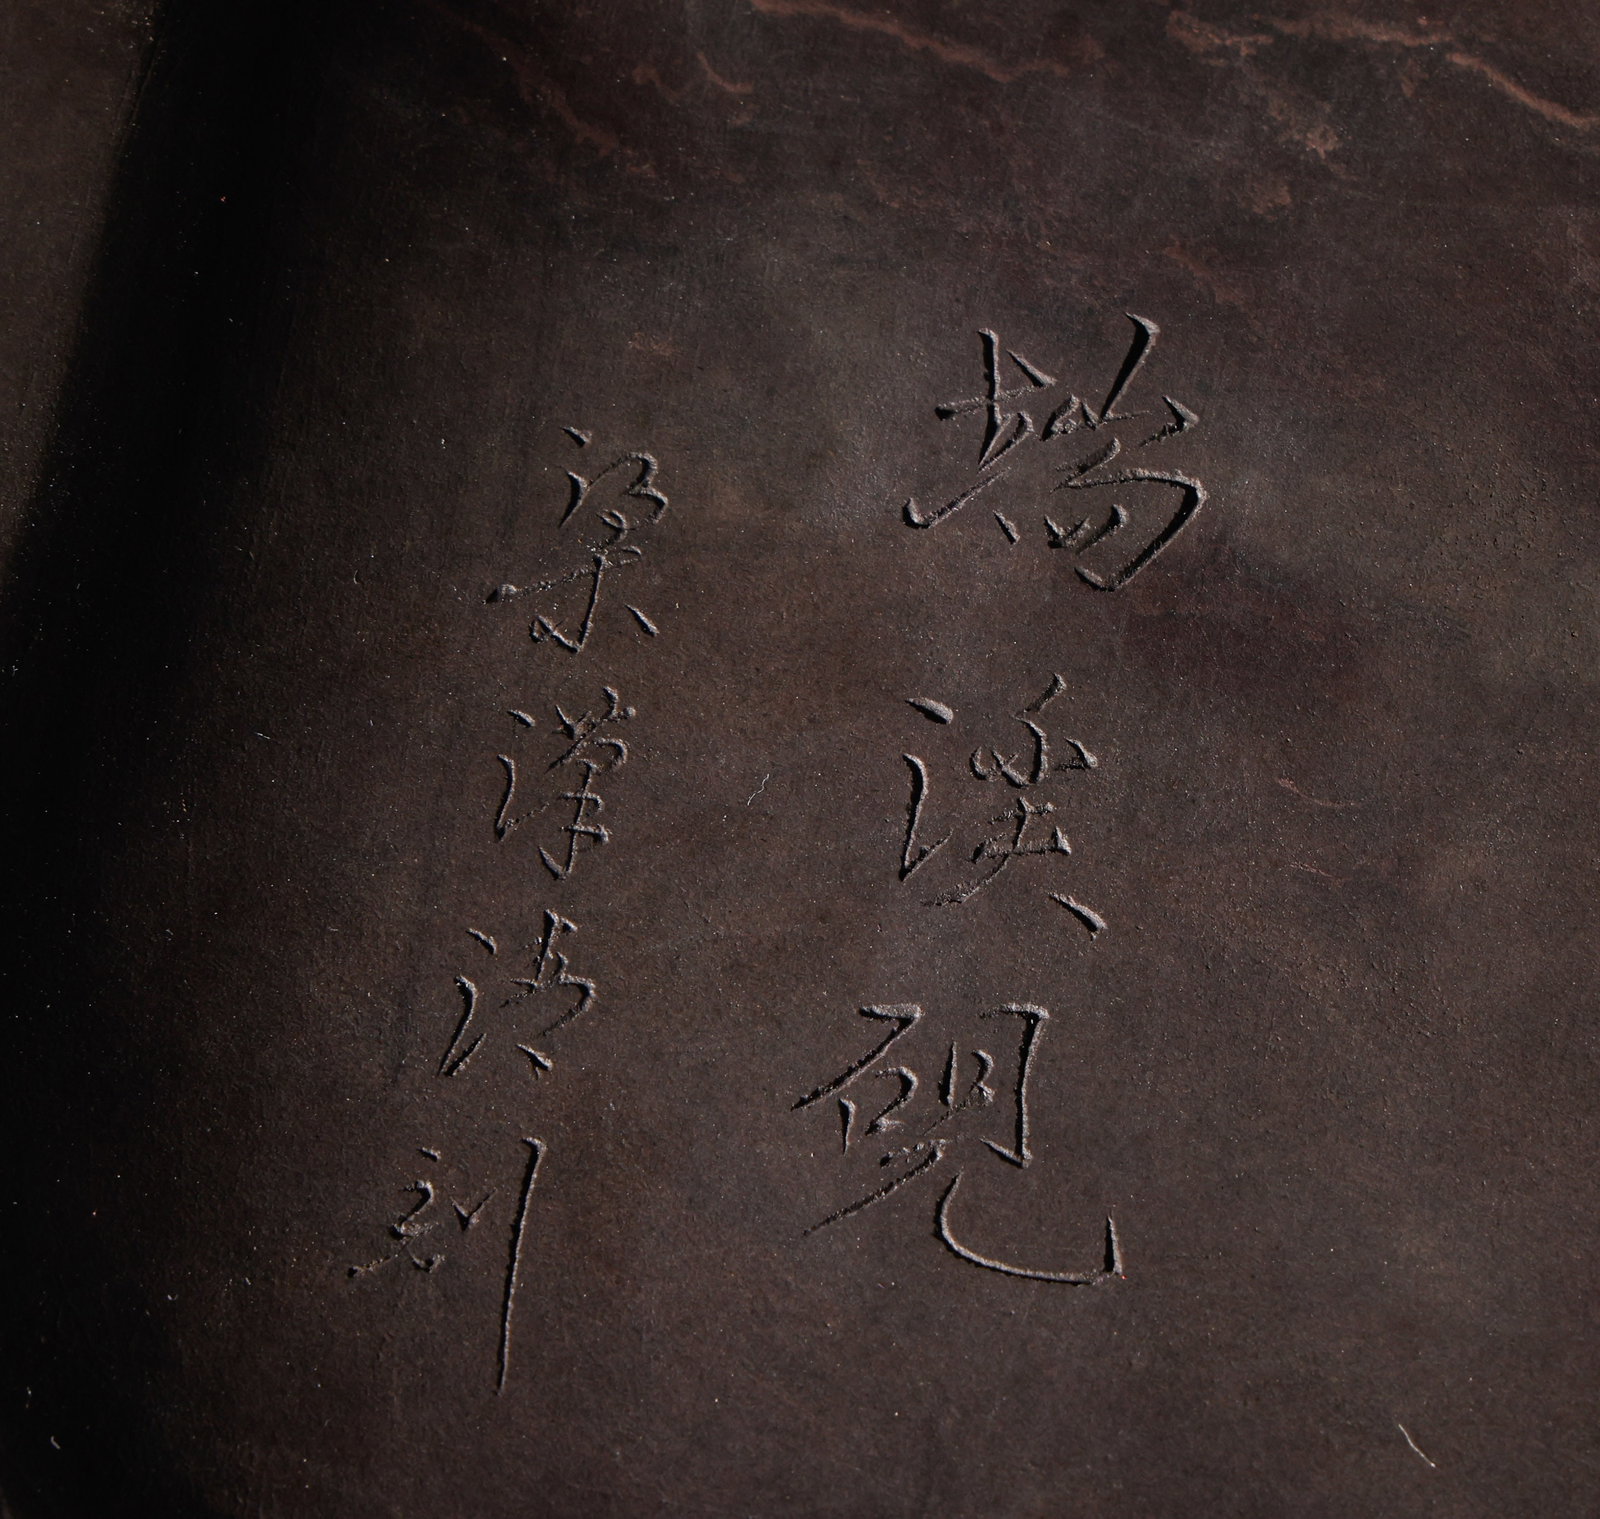 端溪硯
梁漢清刻